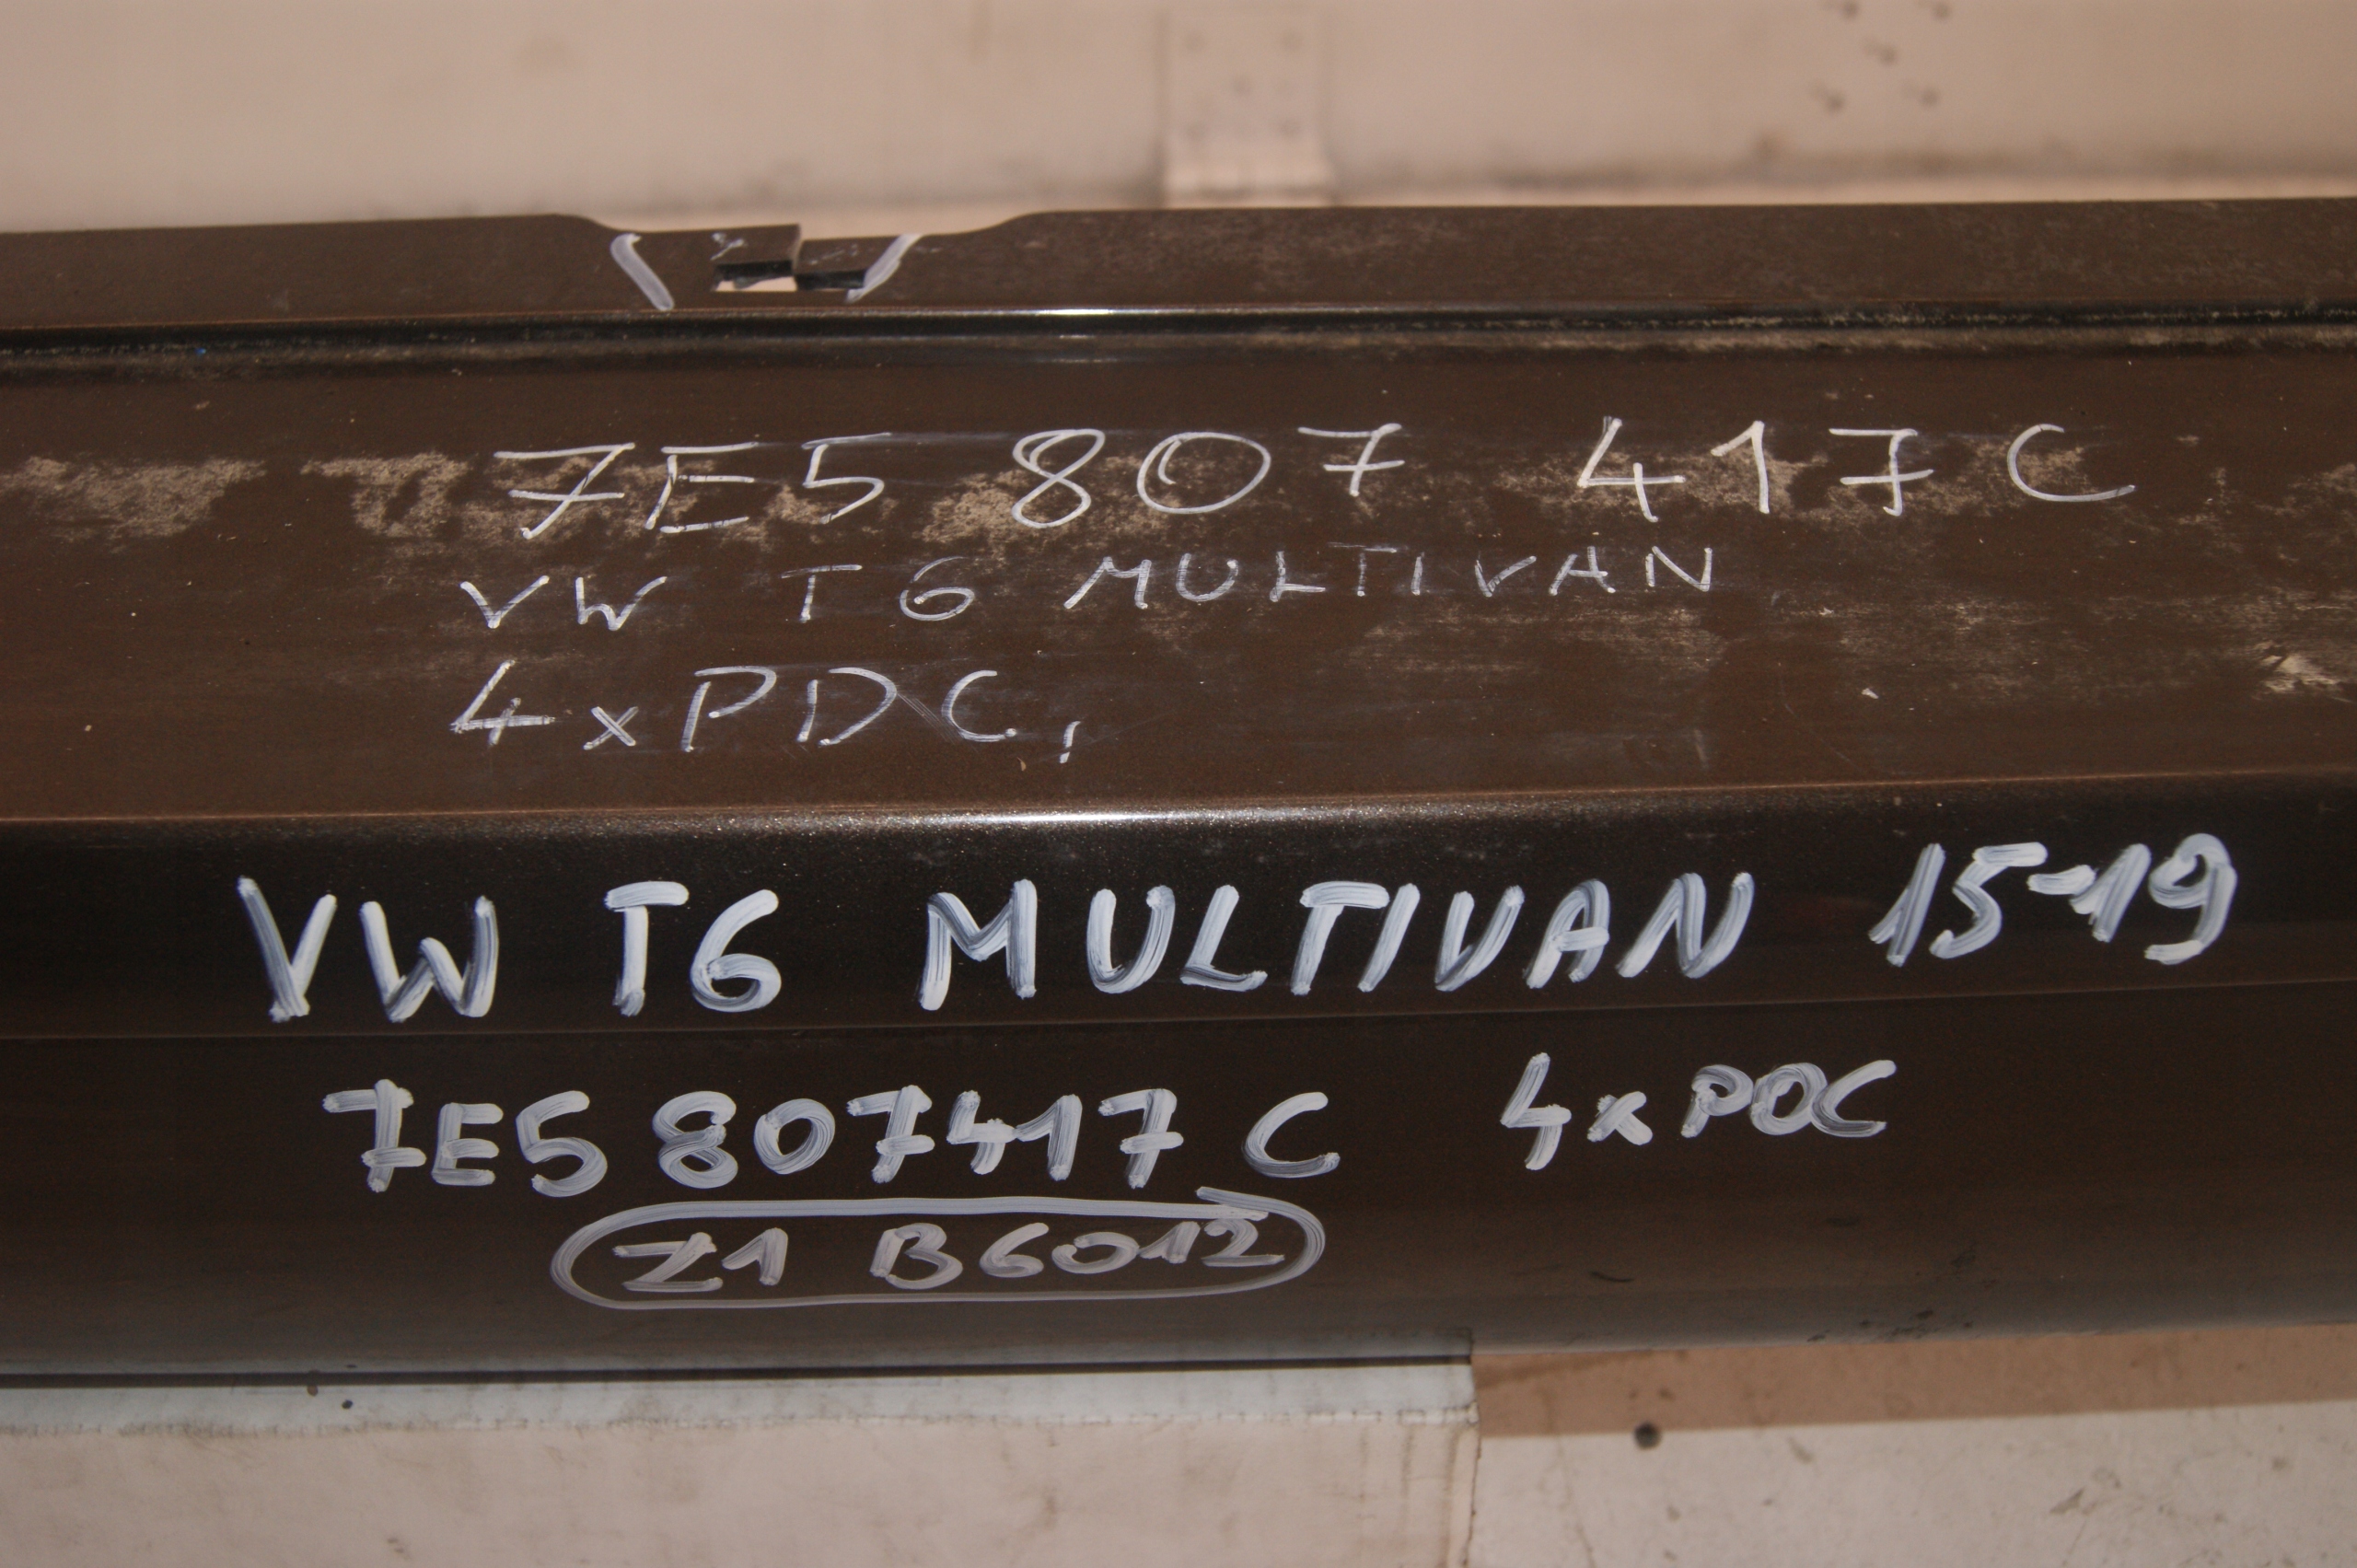 7E5 807 417C
VW T6 MULTIVAN
4xPDC,
VW T6 MULTIVAN 15-19
7E5 807417 C 4xPDC
Z1 B6012